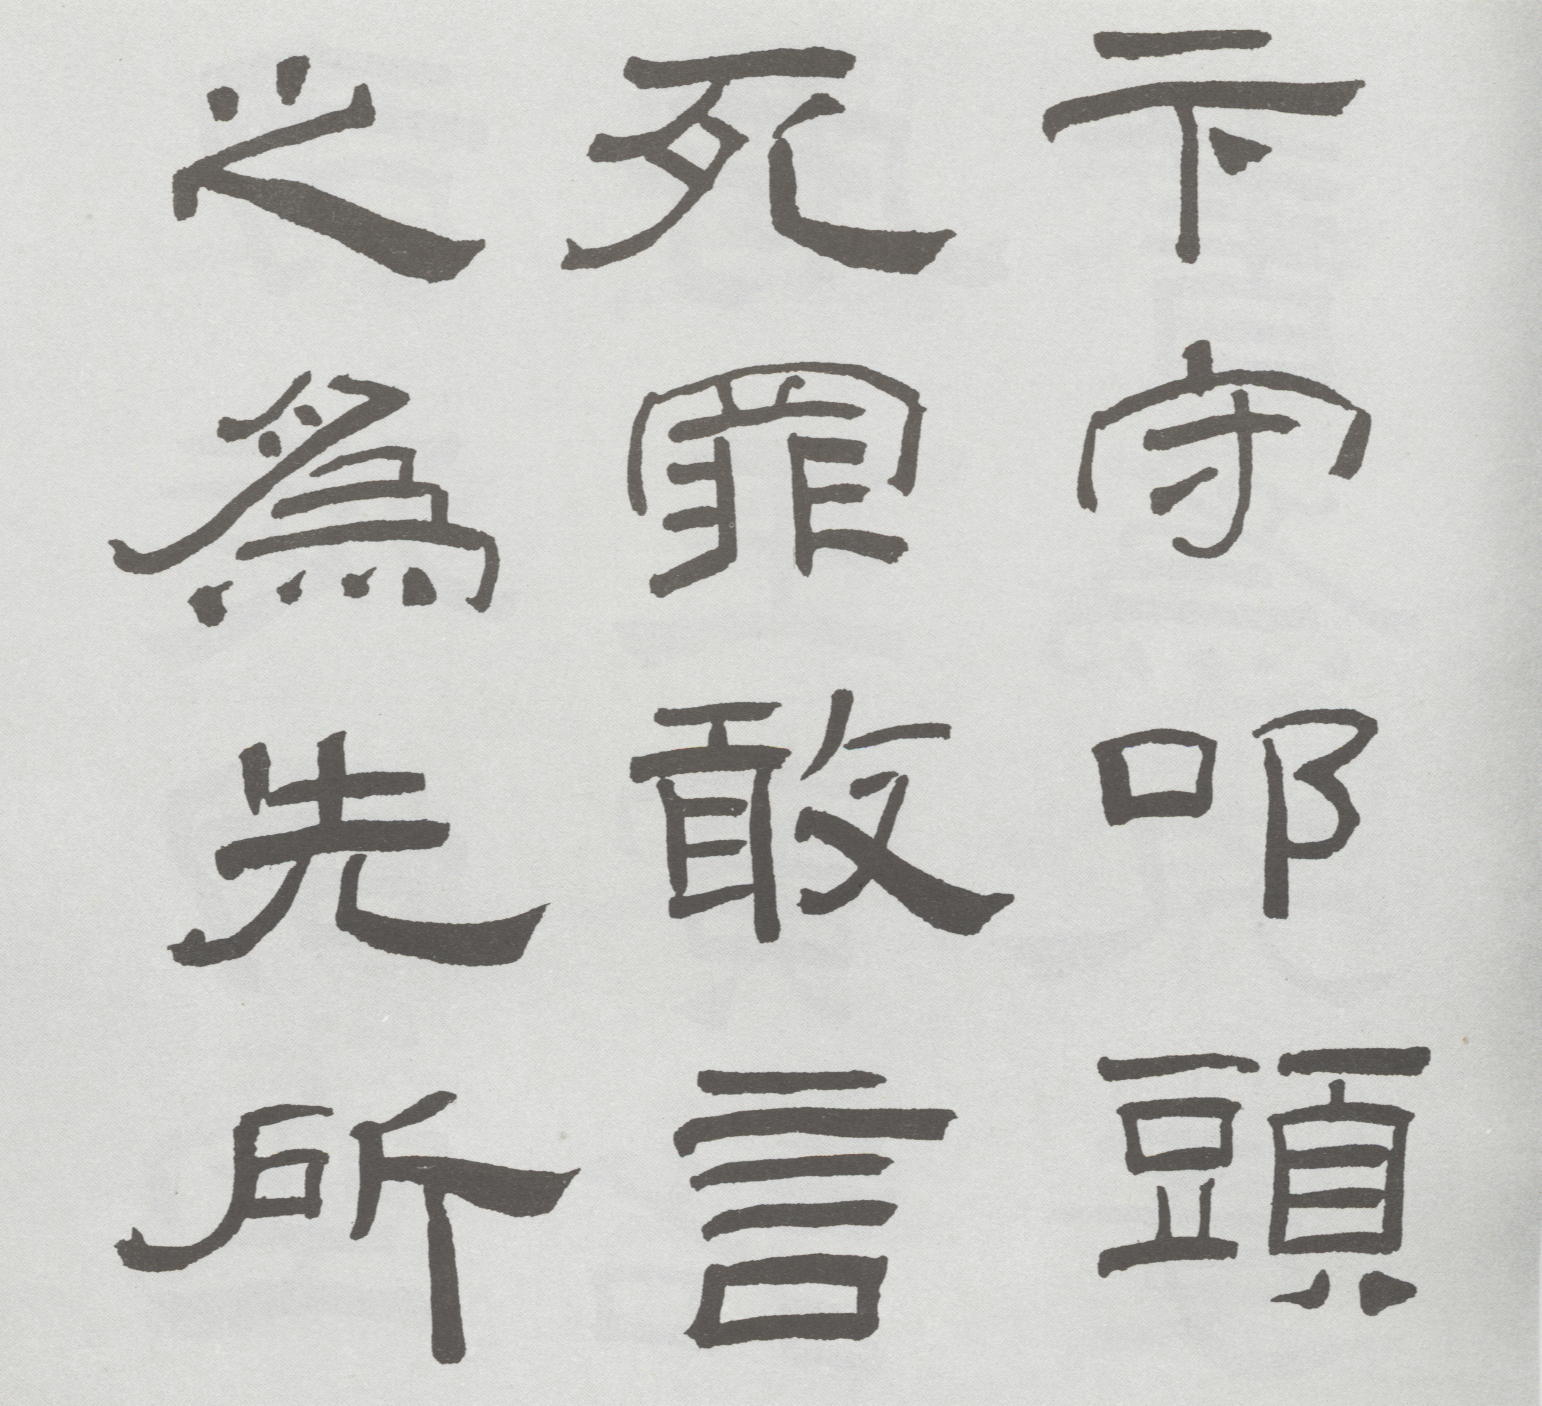 卞守叩頭
死罪敢言
之爲先所